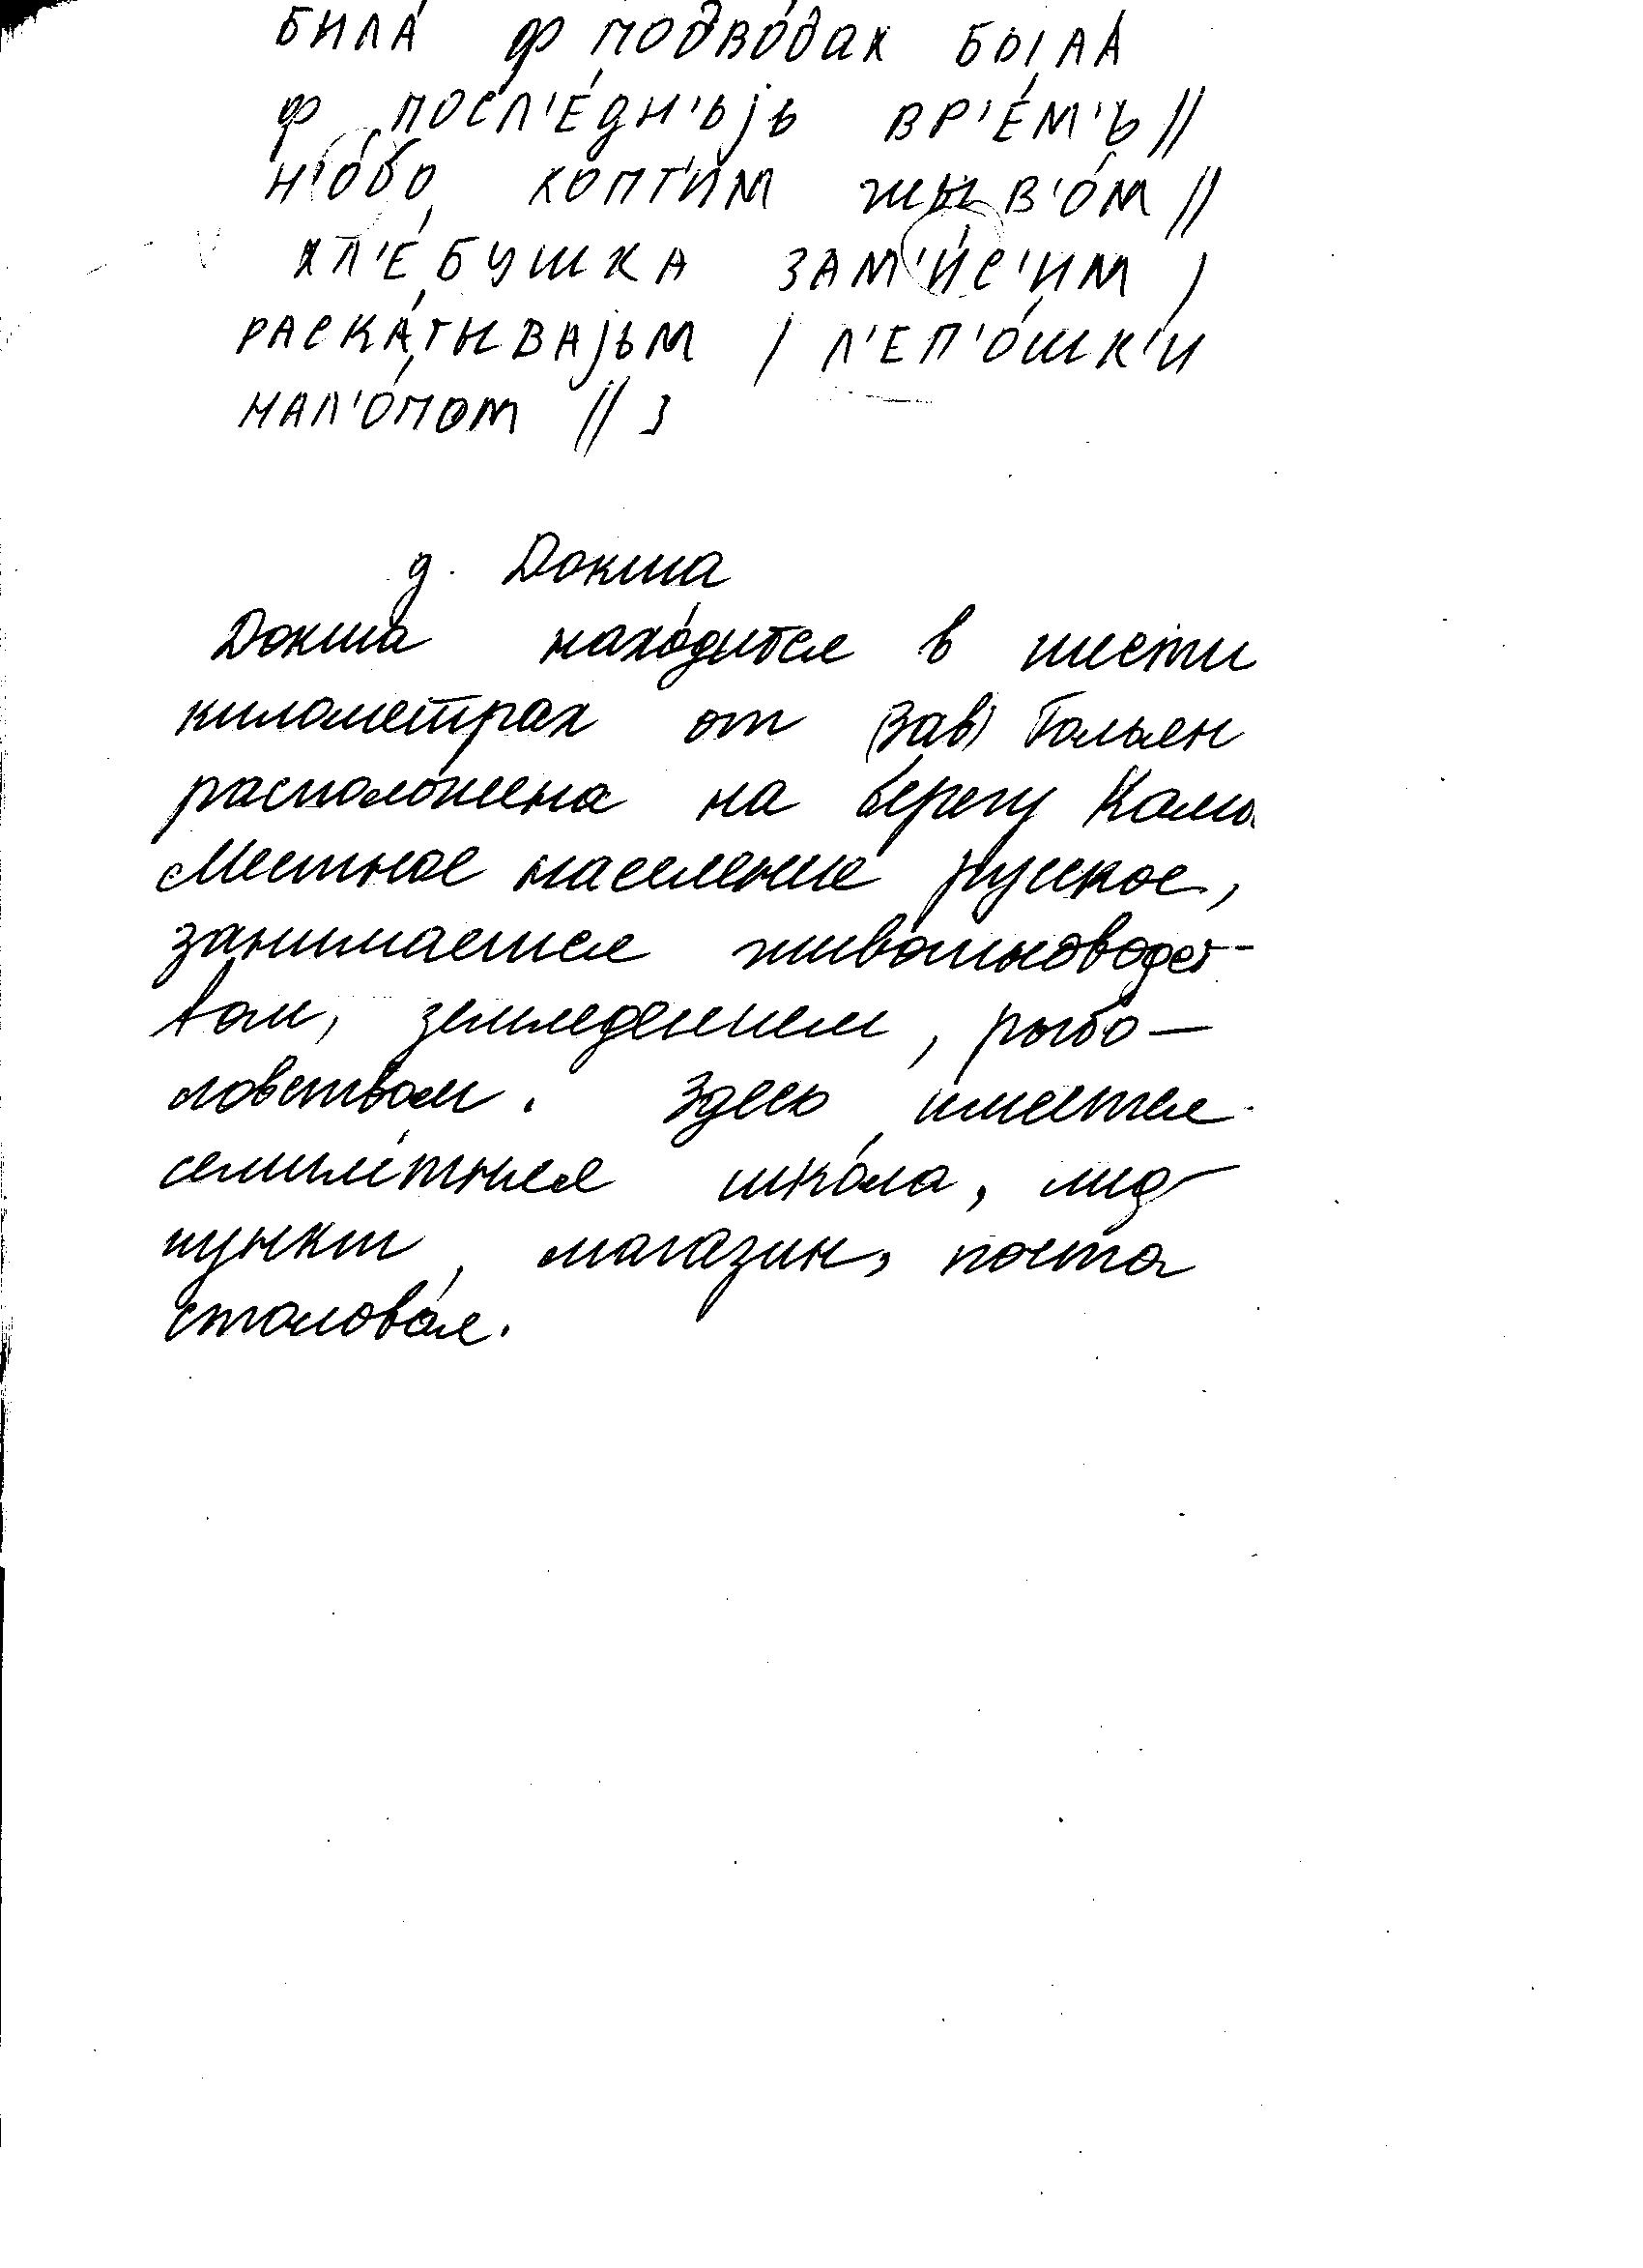 била́ ф подво́дах была́
ф посл'е́дн'ьjь вр'е́м'ъ //
н'о́бо коптим жыв'о́м //
хл'е́бушка зам'и́с'им /
раска́тываjьм / л'еп'о́шк'и
нал'о́пом // з
д. Докша
Докша нахо́дится в шести
километрах от (Зав) Гольян
располо́жена на берегу Камы.
Местное население русское,
занимается животноводст-
вом, земледелием, рыбо-
ловством. Здесь имеется
семиле́тняя шко́ла, мед-
пункт, магазин, почта
столовая.